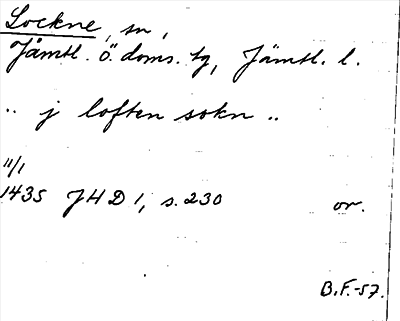 Lockne, sn,
Jämtl. ö. doms. tg, Jämtl. l.
.. j loften sokn ..
11/1
1435 JHD 1, s. 230 or.
B.F.-57.